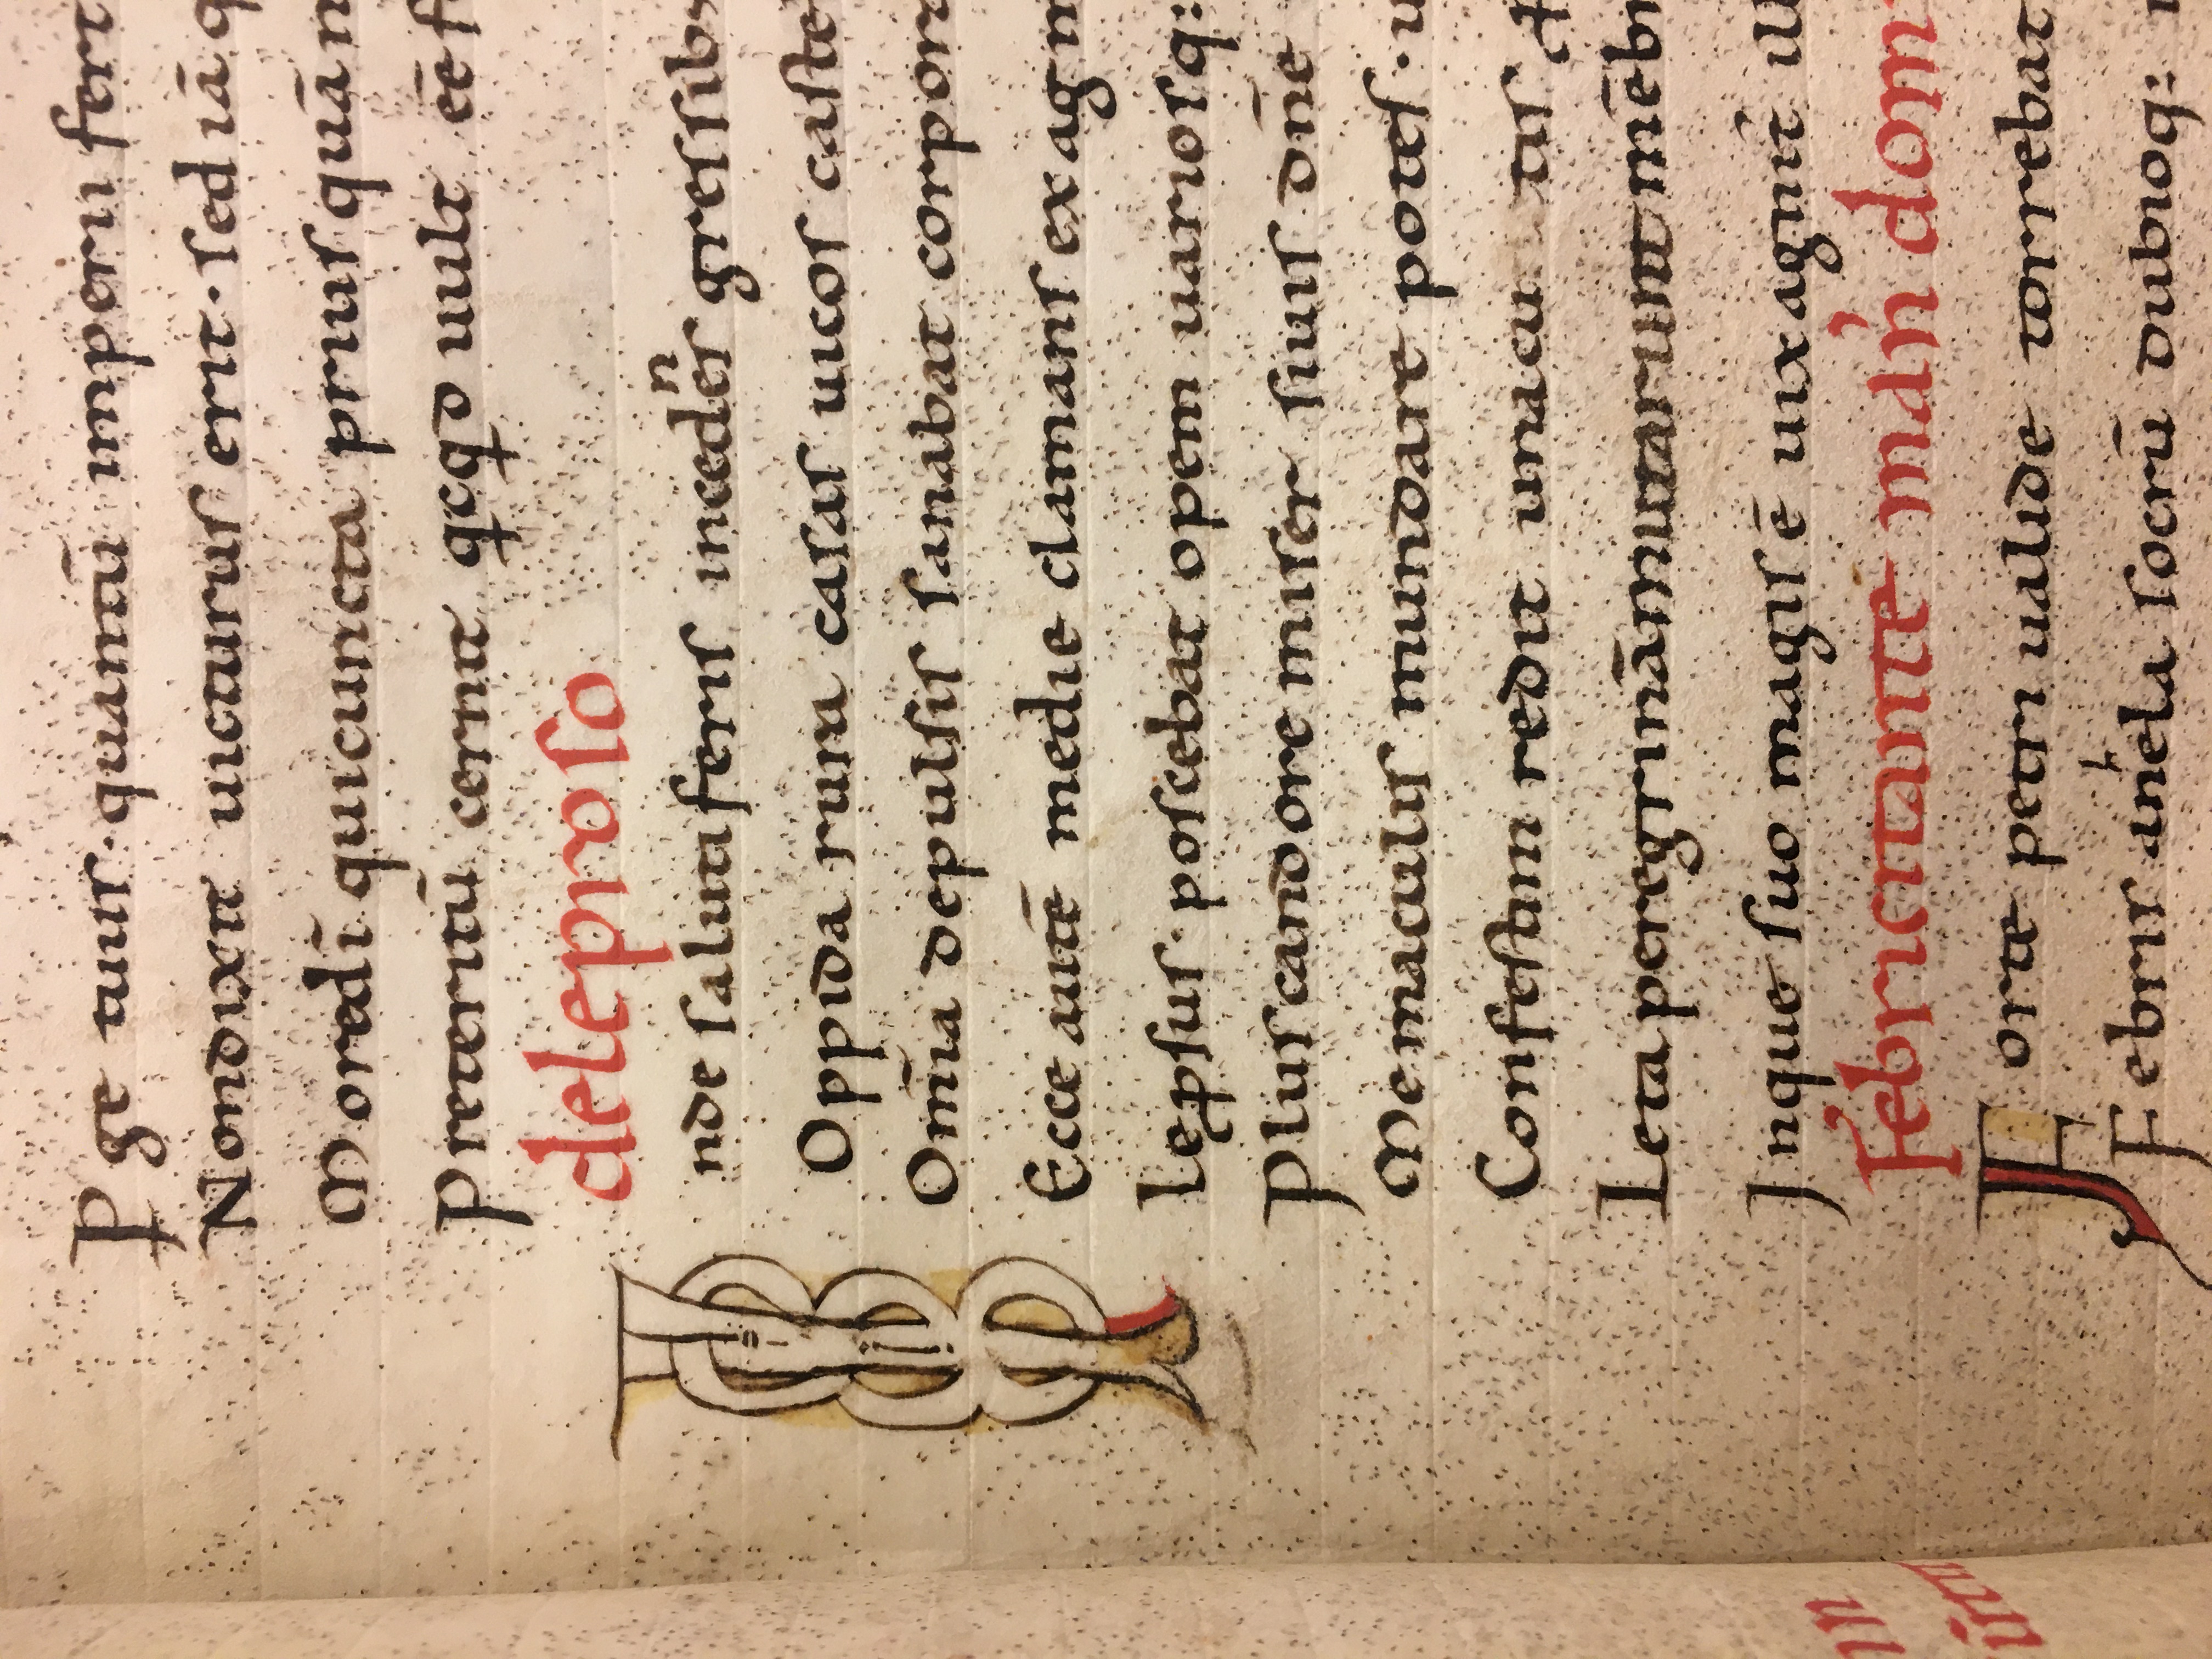 Ꝑge tuiſ·quantū imperii fert
Nondixit uicturuſ erit·ſed iā q
Moredī quicuncta priuſ quā n
Preteritū cernit qcqd uult eē f
deleproſo
Inde ſalutiferiſ incedeſ n greſſibꝰ
Oppida rura caſaſ uicoſ caſte
Om̄ia depulſiſ ſanabat corpora
Ecce autē medie clamanſ ex ag m
Leꝓſuſ·poſcebat opem uarioſq:
Pluſcandore miſer ſiuiſ dn̄e
Memaculiſ mundare poteſ·u
Confeſtim redit unacu tiſ
Leta peregrināmutarunt mēbr
Inque ſuo magiſ ē uix agnit ill
Febricitante man dom
Forte petri ualide torrebat
Febriſ anhela ſocrū dubioq: